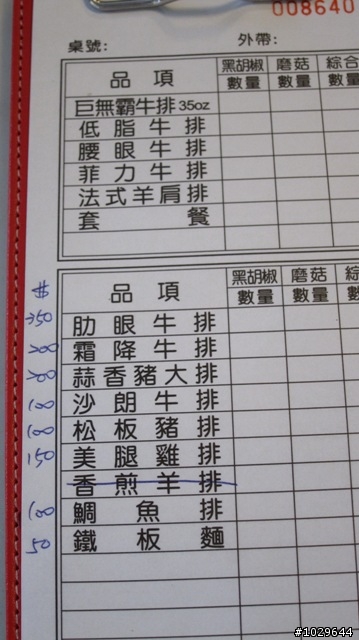 008640
桌號: 外帶:
品項 黑胡椒 數量 磨菇 數量 綜合 數量
巨無霸牛排 35oz
低脂牛排
腰眼牛排
菲力牛排
法式羊肩排
套餐
# 品項 黑胡椒 數量 磨菇 數量 數量
250 肋眼牛排
200 霜降牛排
200 蒜香豬大排
100 沙朗牛排
100 松板豬排
150 美腿雞排
香煎羊排
100 鯛魚排
50 鐵板麵
#1029644